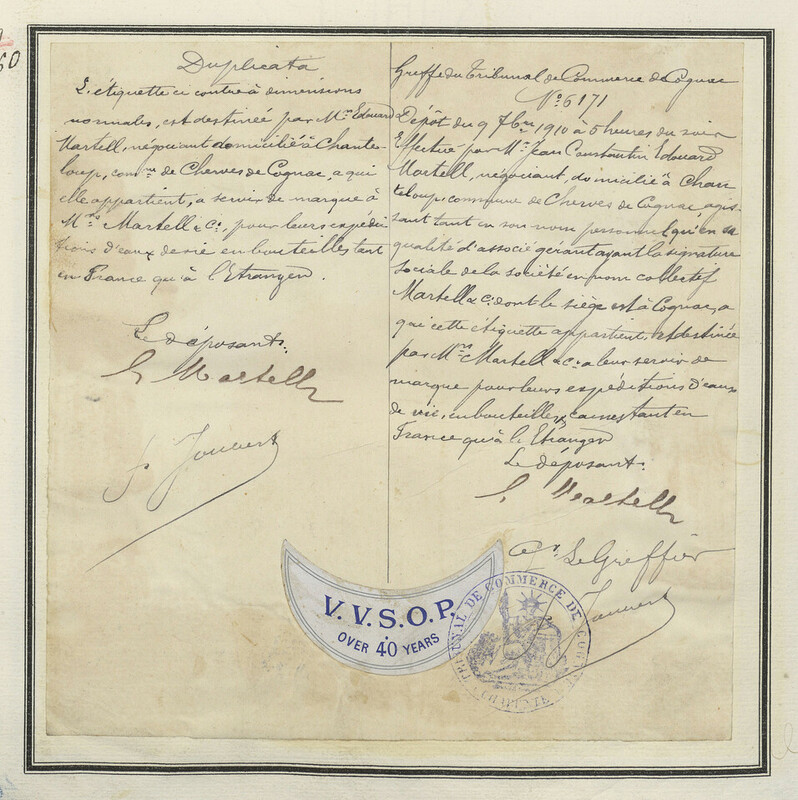 60
Duplicata
L'étiquette ci contre à dimensions
normales, est destinée par Mr. Edouard
Martell, négociant domicilié à Chante-
loup, comne de Cherves de Cognac, a qui
elle appartient, a servir de marque à
Mrs Martell & Co, pour leurs expédi
tions d'eaux de vie en bouteilles tant
en France qu'à l'Etranger.
Le déposant.
E Martell
Joubert
Greffe du Tribunal de Commerce de Cognac
No 6171
Dépôt du 9 7bre 1910 à 5 heures du soir
Effectué par Mr. Jean Constantin Edouard
Martell, négociant, domicilié à Chan
teloup, commune de Cherves de Cognac, agis-
sant tant en son nom personnel qu'en sa
qualité d'associé gérant ayant la signature
sociale de la société en nom collectif
Martell & Co. dont le siège est à Cognac, a
qui cette étiquette appartient, et destinée
par Mrs Martell & Co. a leur servir de
marque pour leurs expéditions d'eaux
de vie, en bouteilles & caisses tant en
France qu'à l'Etranger
Le déposant.
E Martell
Le Greffier
Joubert
V.V.S.O.P.
OVER 40 YEARS
TRIBUNAL DE COMMERCE DE COGNAC